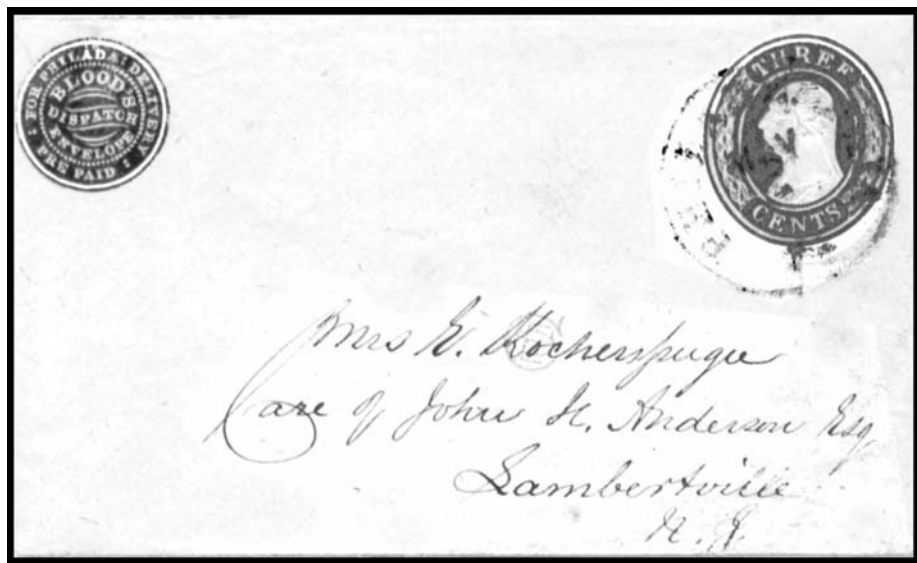 FOR PHILADA. DELIVERY
BLOOD'S
DISPATCH
ENVELOPE
PRE PAID
THREE
CENTS
Mrs E.
Care of John H. Anderson Esq
Lambertville
N. J.